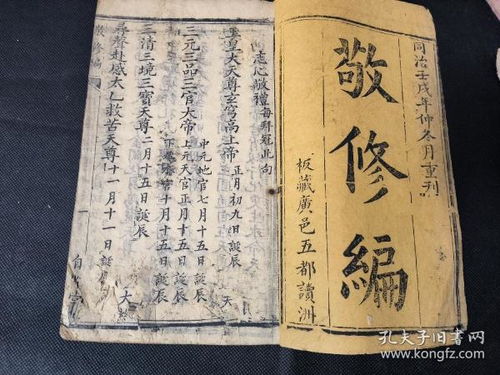 同治壬戌年仲冬月重刊
敬修編
板藏廣邑五都讀洲
志心敬禮每拜冠此句
玉皇大天尊玄穹高上帝正月初九日誕辰
三元三品三官大帝上元天官正月十五日誕辰
中元地官七月十五日誕辰
十月十五日誕辰
三清三境三寶天尊二月十五日誕辰
尋聲赴感太乙救苦天尊十一月十一日誕辰
敬修編
孔夫子旧书网
www.kongfz.com